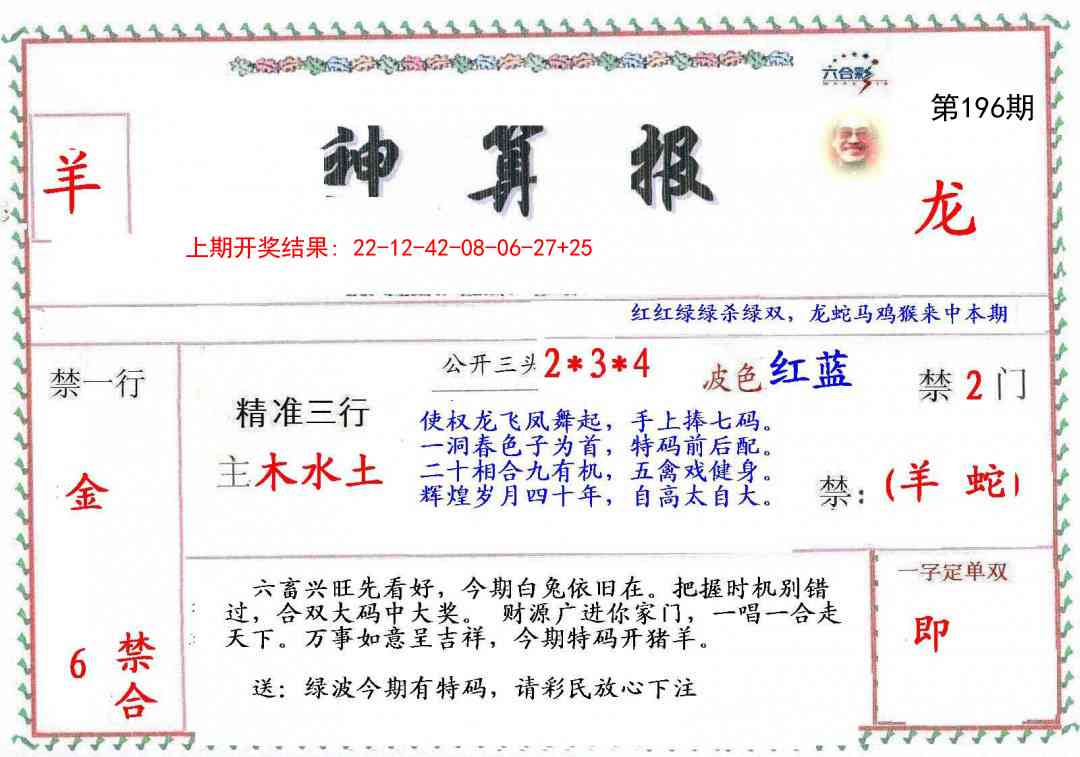 六合彩
第196期
神算报
羊
龙
上期开奖结果：22-12-42-08-06-27+25
红红绿绿杀绿双，龙蛇马鸡猴来中本期
公开三头2*3*4
波色红蓝
禁一行
禁2门
精准三行
使权龙飞凤舞起，手上捧七码。
一洞春色子为首，特码前后配。
主木水土
二十相合九有机，五禽戏健身。
辉煌岁月四十年，自高太自大。
金
禁：(羊 蛇)
一字定单双
六畜兴旺先看好，今期白兔依旧在。把握时机别错
过，合双大码中大奖。 财源广进你家门，一唱一合走
天下。万事如意呈吉祥，今期特码开猪羊。
即
6 禁合
送：绿波今期有特码，请彩民放心下注